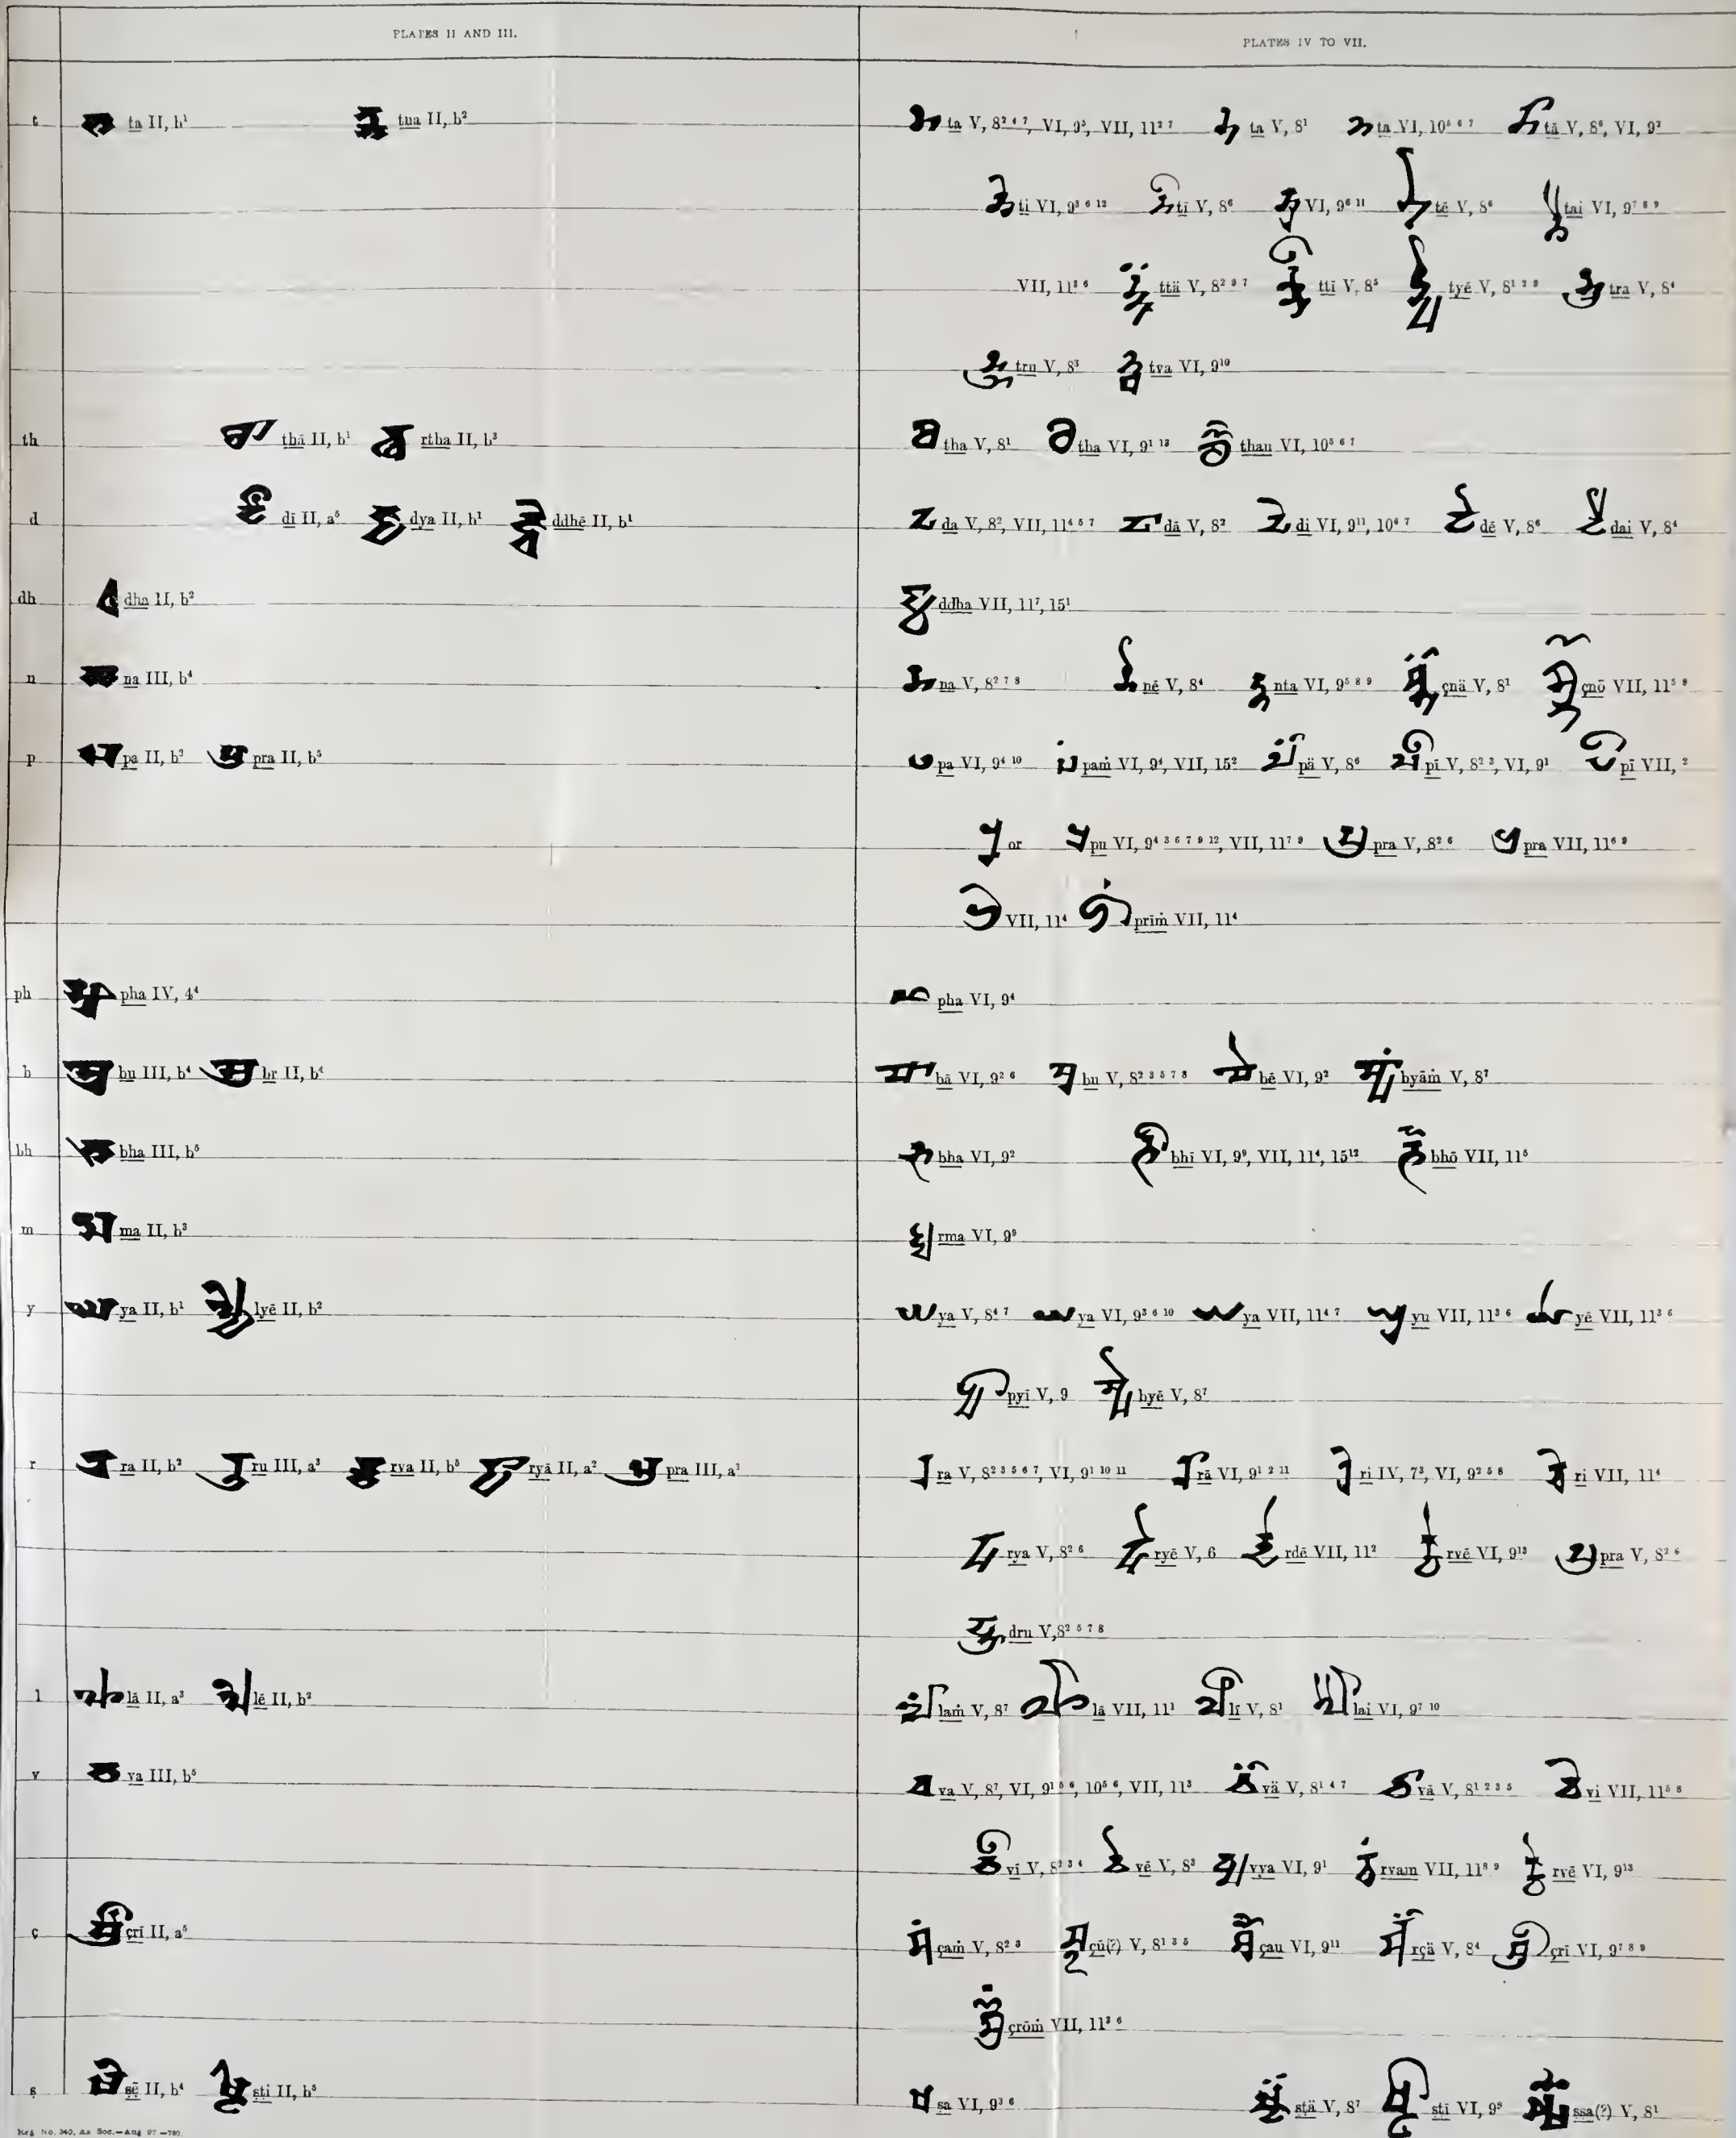 PLATES II AND III.
PLATES IV TO VII.
t ta II, b¹ tua II, b² ta V, 8² ⁴ ⁷, VI, 9⁵, VII, 11² ⁷ ta V, 8¹ ta VI, 10⁵ ⁶ ⁷ tā V, 8⁶, VI, 9²
ti VI, 9³ ⁶ ¹² tī V, 8⁶ VI, 9⁶ ¹¹ tē V, 8⁶ tai VI, 9⁷ ⁸ ⁹
VII, 11³ ⁶ ttä V, 8² ³ ⁷ ttī V, 8⁵ tyē V, 8¹ ² ³ tra V, 8⁴
tru V, 8³ tva VI, 9¹⁰
th thā II, b¹ rtha II, b³ tha V, 8¹ tha VI, 9¹ ¹³ thau VI, 10⁵ ⁶ ⁷
d dī II, a⁵ dya II, b¹ ddhē II, b¹ da V, 8², VII, 11⁴ ⁵ ⁷ dā V, 8² di VI, 9¹¹, 10⁶ ⁷ dē V, 8⁶ dai V, 8⁴
dh dha II, b² ddha VII, 11⁷, 15¹
n na III, b⁴ na V, 8² ⁷ ⁸ nē V, 8⁴ nta VI, 9⁵ ⁸ ⁹ çnä V, 8¹ çnō VII, 11⁵ ⁹
p pa II, b³ pra II, b⁵ pa VI, 9⁴ ¹⁰ paṁ VI, 9⁴, VII, 15² pä V, 8⁶ pī V, 8² ³, VI, 9¹ pī VII, ²
or pu VI, 9⁴ ³ ⁶ ⁷ ⁹ ¹², VII, 11⁷ ⁹ pra V, 8² ⁶ pra VII, 11⁶ ⁹
VII, 11⁴ prīṁ VII, 11⁴
ph pha IV, 4⁴ pha VI, 9⁴
b bu III, b⁴ br II, b⁴ bā VI, 9² ⁶ bu V, 8² ³ ⁵ ⁷ ⁸ bē VI, 9² byāṁ V, 8⁷
bh bha III, b⁵ bha VI, 9² bhī VI, 9⁹, VII, 11⁴, 15¹² bhō VII, 11⁵
m ma II, b³ rma VI, 9⁹
y ya II, b¹ lyē II, b² ya V, 8⁴ ⁷ ya VI, 9³ ⁶ ¹⁰ ya VII, 11⁴ ⁷ yu VII, 11³ ⁶ yē VII, 11³ ⁶
pyī V, 9 byē V, 8⁷
r ra II, b² ru III, a³ rva II, b⁵ ryā II, a² pra III, a³ ra V, 8² ³ ⁵ ⁶ ⁷, VI, 9¹ ¹⁰ ¹¹ rā VI, 9¹ ² ¹¹ ri IV, 7³, VI, 9² ⁵ ⁸ ri VII, 11⁴
rya V, 8² ⁶ ryē V, 6 rdē VII, 11² rvē VI, 9¹³ pra V, 8² ⁶
dru V, 8² ⁵ ⁷ ⁸
l lā II, a³ lē II, b² laṁ V, 8⁷ lā VII, 11¹ lī V, 8¹ lai VI, 9⁷ ¹⁰
v va III, b⁵ va V, 8⁷, VI, 9¹ ⁵ ⁶, 10⁵ ⁶, VII, 11³ vä V, 8¹ ⁴ ⁷ vā V, 8¹ ² ³ ⁵ vi VII, 11⁵ ⁸
vī V, 8² ³ ⁴ vē V, 8³ vya VI, 9¹ rvam VII, 11⁸ ⁹ rvē VI, 9¹³
ç çrī II, a⁵ çaṁ V, 8² ³ çū(?) V, 8¹ ³ ⁵ çau VI, 9¹¹ rçä V, 8⁴ çrī VI, 9⁷ ⁸ ⁹
çrōṁ VII, 11³ ⁶
ṣ ṣē II, b⁴ ṣti II, b⁵ ṣa VI, 9³ ⁶ ṣtä V, 8⁷ ṣtī VI, 9⁹ ṣsa(?) V, 8¹
Reg No. 340, As Soc.—Aug 97 —780.